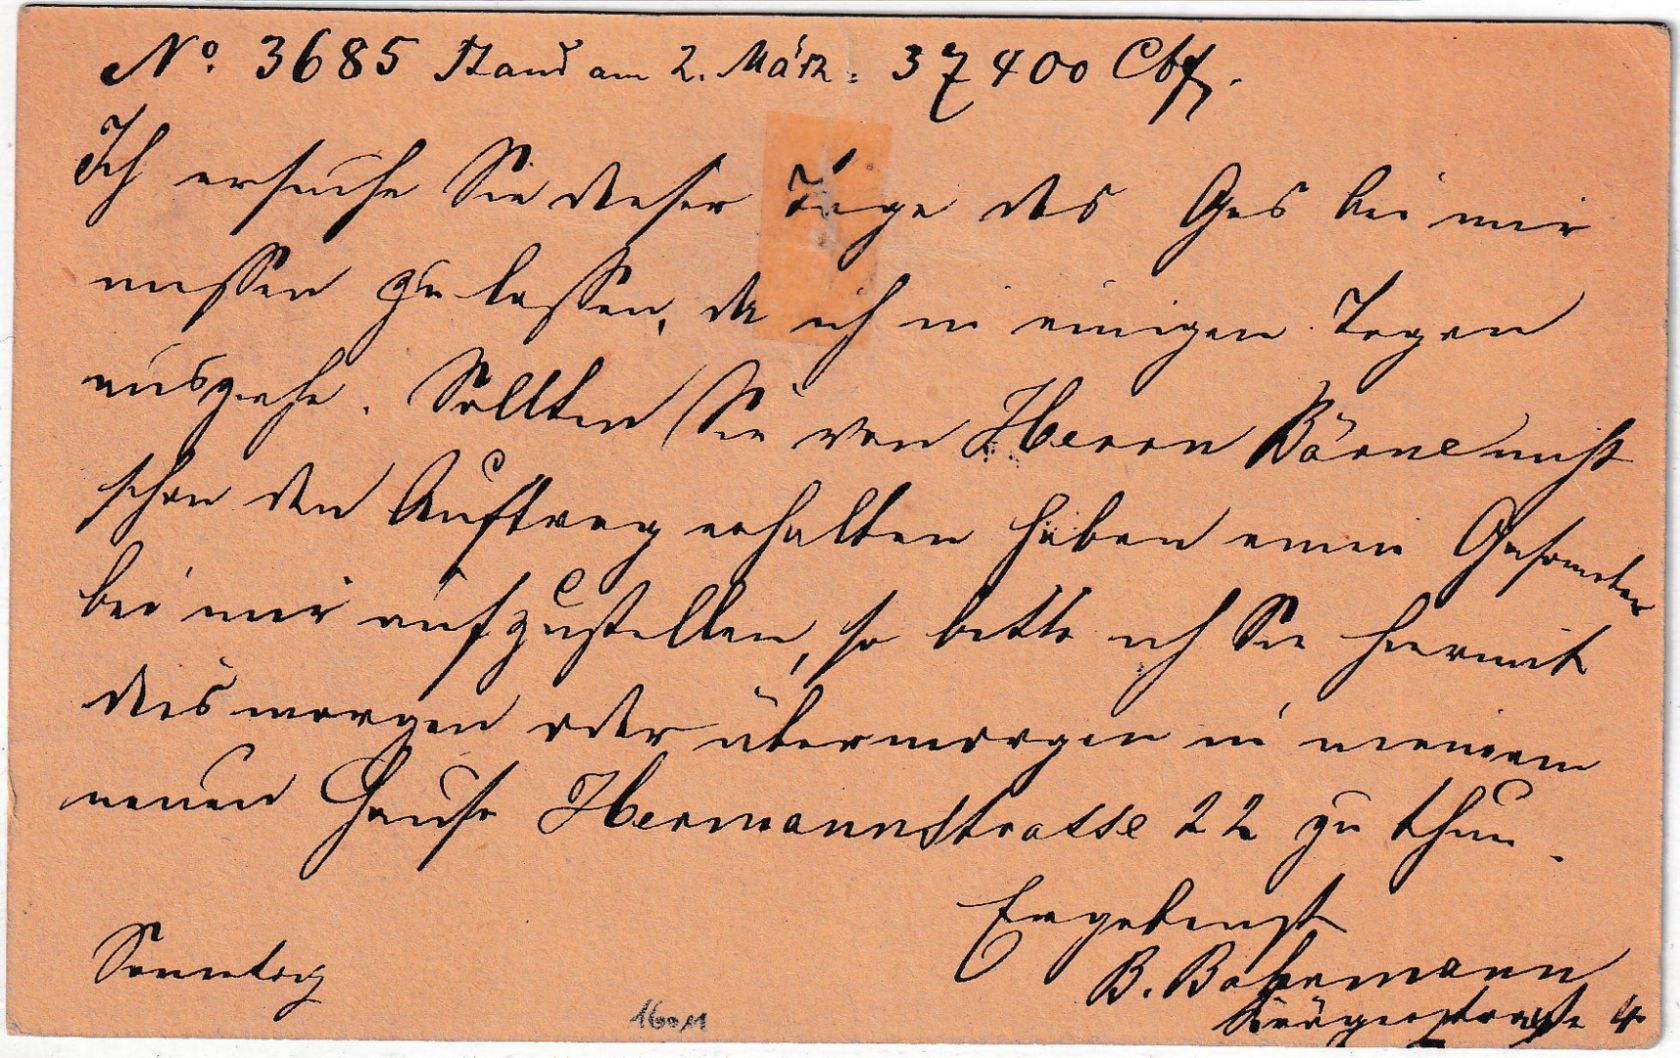 No. 3685 Stand am 2. März: 37400 Cbf.
Ich ersuche Sie dieser Tage das Gas bei mir
messen zu lassen, da ich in einigen Tagen
ausziehe. Sollten Sie von Herrn Börne nicht
schon den Auftrag erhalten haben einen Gasometer
bei mir aufzustellen, so bitte ich Sie hiermit
dies morgen oder übermorgen in meinem
neuen Hause Hermannstrasse 22 zu thun.
Ergebenst
Sonntag
B. Bohrmann
4